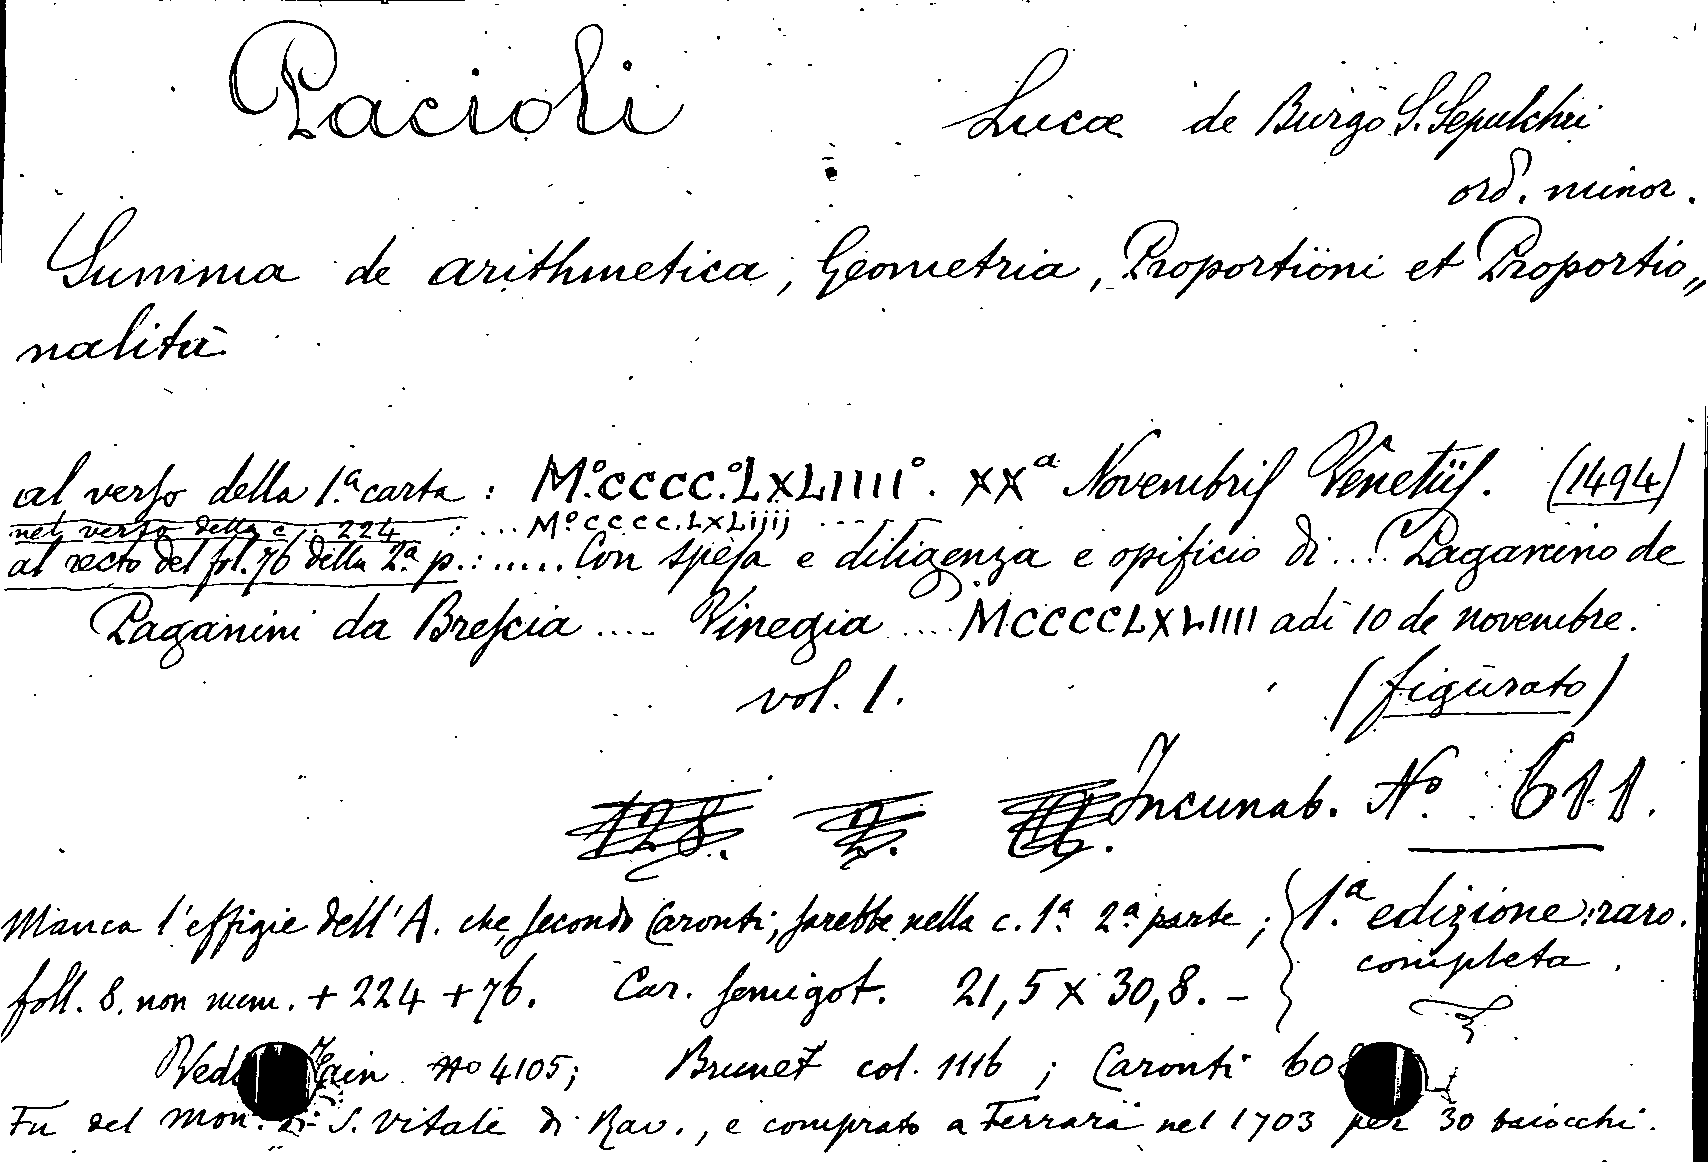 Pacioli Lucæ de Burgo S. Sepulchri
ord. minor.
Summa de arithmetica, Geometria, Proportioni et Proportio„
nalità
al verso della 1.ª carta : M.º CCCC.º LXLIIIIº. XXª Novembris Venetiis. (1494)
nel verso della c. : 224 : ... Mº CCCC. LXLiiij ....
al recto del fol. 76 della 2ª p.: ..... Con spesa e diligenza e opificio di .... Paganino de
Paganini da Brescia .... Vinegia .... MCCCCLXLIIII adì 10 de novembre.
vol. 1. (figurato)
128. 2. Incunab. Nº. 611.
Manca l'effigie dell'A. che, secondo Caronti, sarebbe nella c. 1ª 2ª parte ; 1.ª edizione : raro.
completa.
foll. 8. non num. + 224 + 76. Car. semigot. 21,5 x 30,8. –
Nº 4105; Brunet col. 1116 ; Caronti
Fu del Mon. di S. Vitale di Rav., e comprato a Ferrara nel 1703 per 30 baiocchi.